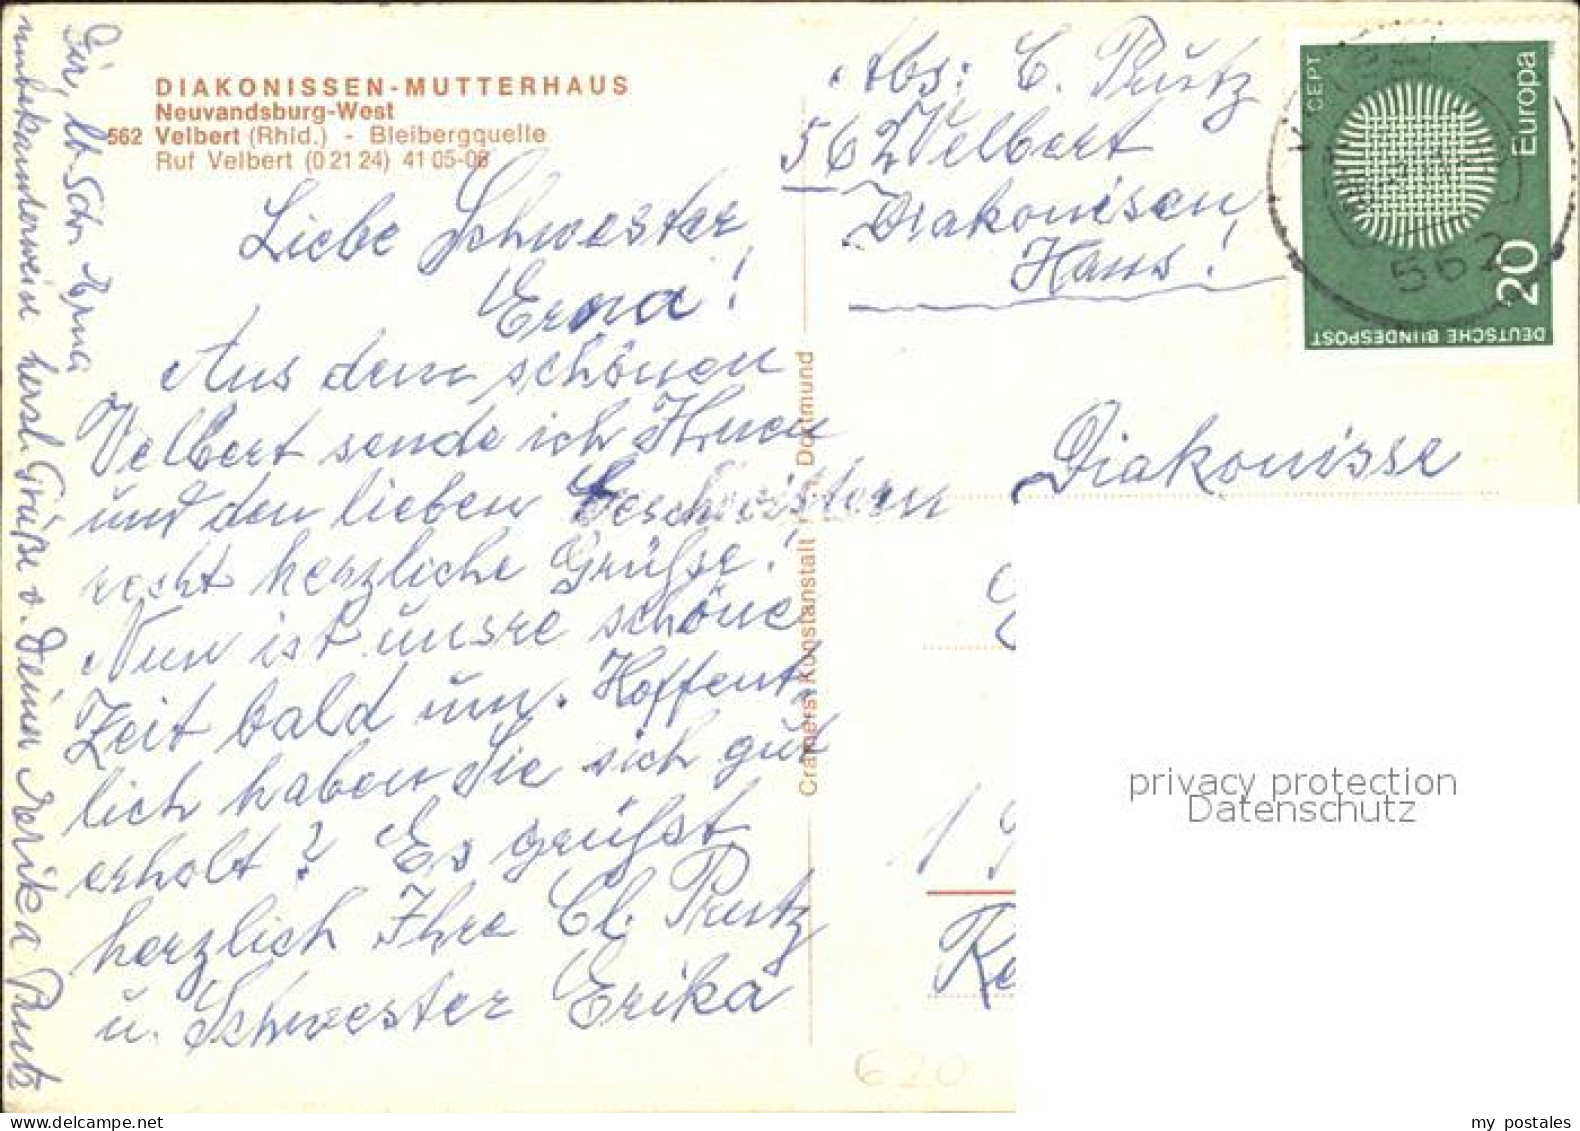 DIAKONISSEN-MUTTERHAUS
Neuvandsburg-West
562 Velbert (Rhld.) - Bleibergquelle
Ruf Velbert (0 21 24) 41 05-08
Liebe Schwester
Erna!
Aus dem schönen
Velbert sende ich Ihnen
und den lieben Geschwistern
recht herzliche Grüße!
Nun ist unsre schöne
Zeit bald um. Hoffent-
lich haben Sie sich gut
erholt? Es grüßt
herzlich Ihre Cl. Prutz
u. Schwester Erika
Dir, lb. Schw. Erna
unbekannterweise herzl. Grüße v. Deiner Erika Prutz
Cramers Kunstanstalt Dortmund
Abs: C. Prutz
562 Velbert
Diakonissen
Haus!
CEPT
Europa
20
DEUTSCHE BUNDESPOST
562
Diakonisse
privacy protection
Datenschutz
620
my postales